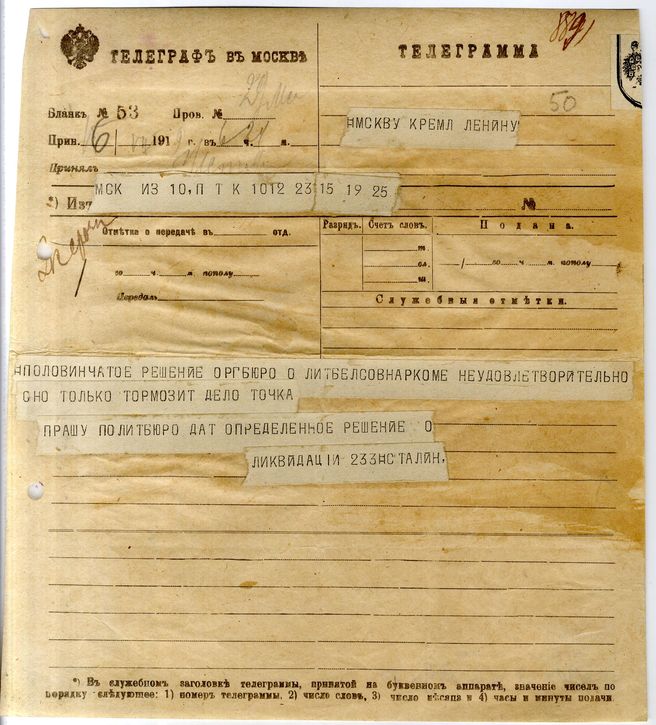 ТЕЛЕГРАФЪ ВЪ МОСКВѢ
ТЕЛЕГРАММА
Бланкъ № 53 Пров. №
50
≠МСКВУ КРЕМЛ ЛЕНИНУ
Прин. 16/VII 191 г. въ ч. м.
Принялъ
МСК ИЗ 10,П Т К 1012 23 15 19 25
*) Из
№
Отмѣтка о передачѣ въ отд.
го ч. м. пополу
Передалъ
Разрядъ. Счетъ словъ. Подана.
т.
сл.
ш.
/ го ч. м. пополу
Служебныя отмѣтки.
≠ПОЛОВИНЧАТОЕ РЕШЕНИЕ ОРГБЮРО О ЛИТБЕЛСОВНАРКОМЕ НЕУДОВЛЕТВОРИТЕЛЬНО
ОНО ТОЛЬКО ТОРМОЗИТ ДЕЛО ТОЧКА
ПРАШУ ПОЛИТБЮРО ДАТ ОПРЕДЕЛЕННОЕ РЕШЕНИЕ О
ЛИКВИДАЦІИ 233≠СТАЛИН,
*) Въ служебномъ заголовкѣ телеграммы, принятой на буквенномъ аппаратѣ, значеніе чиселъ по
порядку слѣдующее: 1) номеръ телеграммы, 2) число словъ, 3) число мѣсяца и 4) часы и минуты подачи.